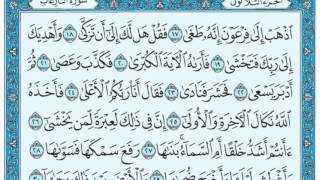 الجزء الثلاثون سورة النازعات
ٱذۡهَبۡ إِلَىٰ فِرۡعَوۡنَ إِنَّهُۥ طَغَىٰ ١٧ فَقُلۡ هَل لَّكَ إِلَىٰٓ أَن تَزَكَّىٰ ١٨ وَأَهۡدِيَكَ
إِلَىٰ رَبِّكَ فَتَخۡشَىٰ ١٩ فَأَرَىٰهُ ٱلۡأٓيَةَ ٱلۡكُبۡرَىٰ ٢٠ فَكَذَّبَ وَعَصَىٰ ٢١ ثُمَّ
أَدۡبَرَ يَسۡعَىٰ ٢٢ فَحَشَرَ فَنَادَىٰ ٢٣ فَقَالَ أَنَا۠ رَبُّكُمُ ٱلۡأَعۡلَىٰ ٢٤ فَأَخَذَهُ
ٱللَّهُ نَكَالَ ٱلۡأٓخِرَةِ وَٱلۡأُولَىٰٓ ٢٥ إِنَّ فِي ذَٰلِكَ لَعِبۡرَةٗ لِّمَن يَخۡشَىٰٓ ٢٦
ءَأَنتُمۡ أَشَدُّ خَلۡقًا أَمِ ٱلسَّمَآءُۚ بَنَىٰهَا ٢٧ رَفَعَ سَمۡكَهَا فَسَوَّىٰهَا ٢٨